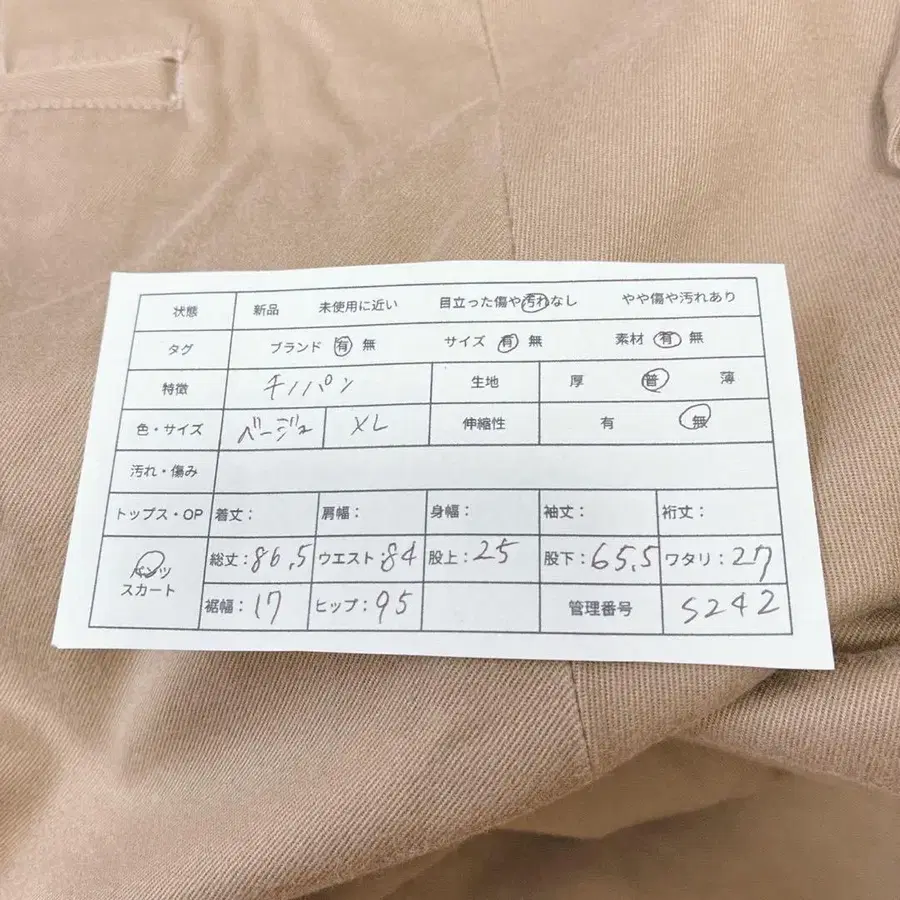 状態 新品 未使用に近い 目立った傷や汚れなし やや傷や汚れあり
タグ ブランド 有 無 サイズ 有 無 素材 有 無
特徴 チノパン 生地 厚 普 薄
色・サイズ ベージュ XL 伸縮性 有 無
汚れ・傷み
トップス・OP 着丈： 肩幅： 身幅： 袖丈： 裄丈：
パンツ 総丈：86.5 ウエスト：84 股上：25 股下：65.5 ワタリ：27
スカート 裾幅：17 ヒップ：95 管理番号 S242